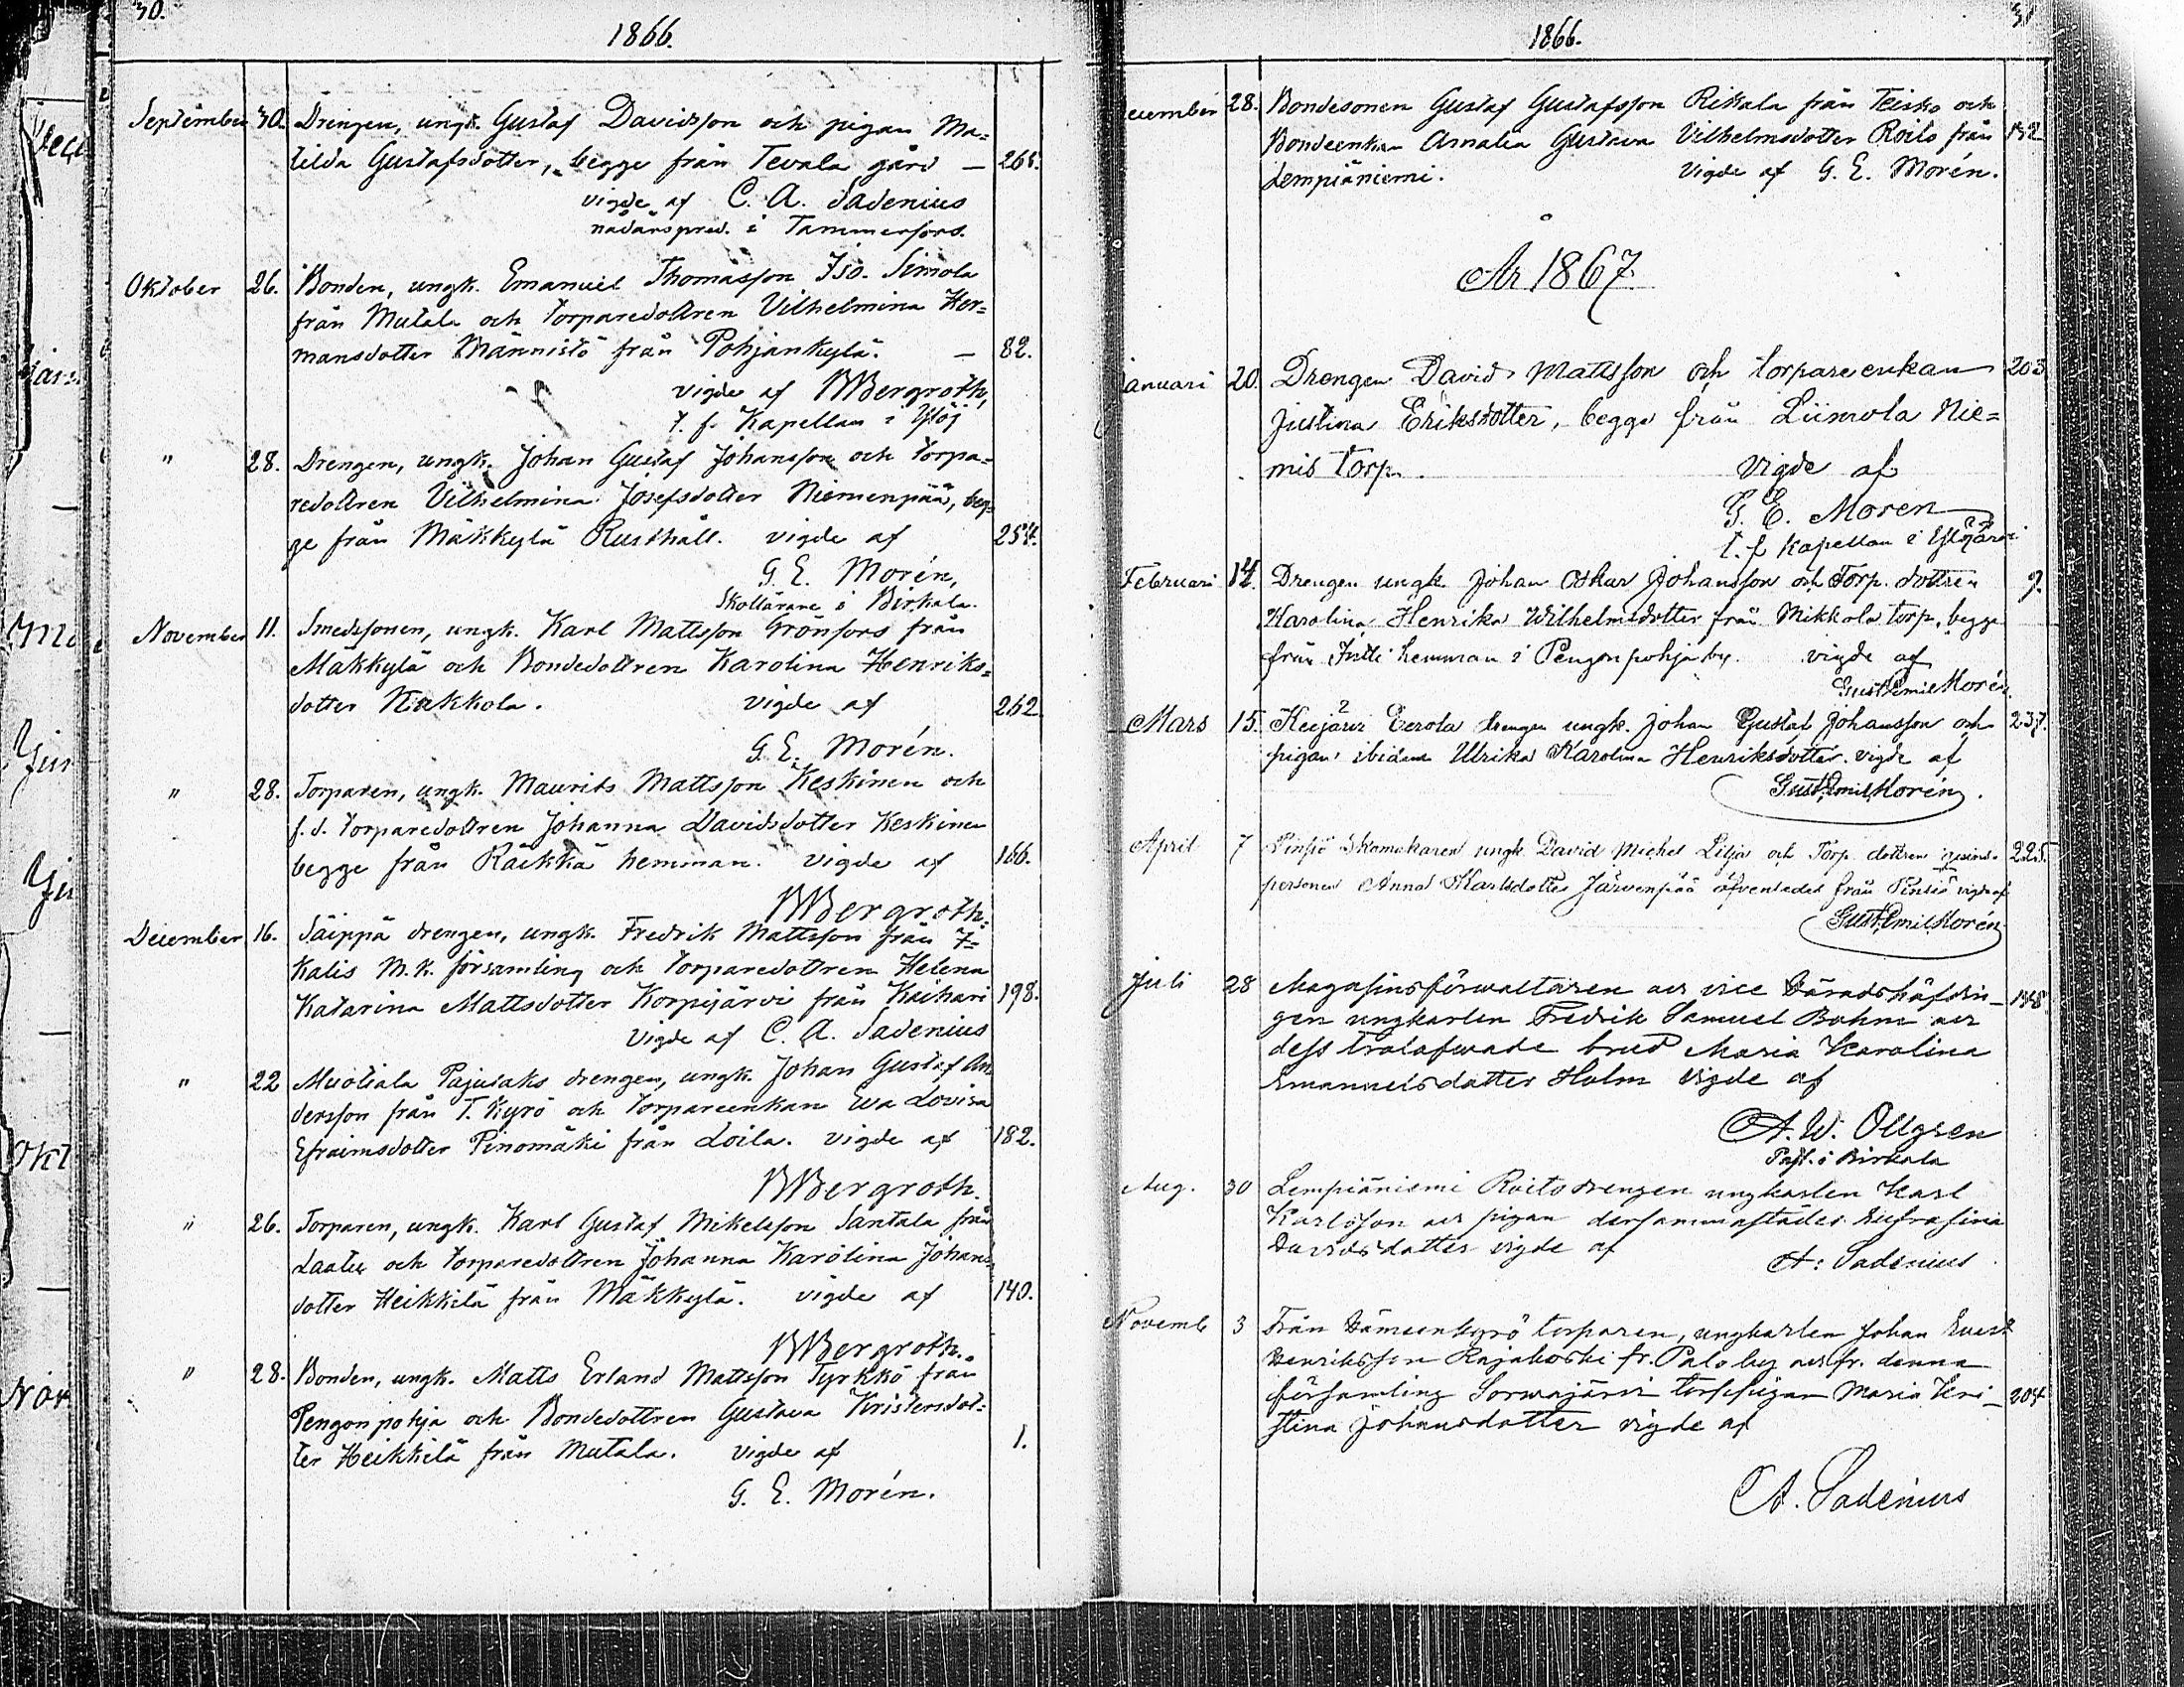 30.
1866.
September 30. Drengen, ungk. Gustaf Davidsson och pigan Ma=
tilda Gustafsdotter, begge från Tevala gård — 265.
vigde af C. A. Sadenius
nådårspred. i Tammerfors.
Oktober 26. Bonden, ungk. Emanuel Thomasson Iso-Simola
från Mutala och torparedottren Vilhelmina Her=
mansdotter Männistö från Pohjankylä. — 82.
vigde af BBergroth,
t. f. Kapellan i Ylöj
" 28. Drengen, ungk. Johan Gustaf Johansson och torpa=
redottren Vilhelmina Josefsdotter Niemenpää, beg=
ge från Mäkkylä Rusthåll. vigde af 254.
G. E. Morén,
Skollärare i Birkala.
November 11. Smedssonen, ungk. Karl Mattsson Grönfors från
Mäkkylä och Bondedottren Karolina Henriks=
dotter Kukkola. vigde af 262.
G. E. Morén.
" 28. Torparen, ungk. Maurits Mattsson Keskinen och
f. d. torparedottren Johanna Davidsdotter Keskinen
begge från Räikkä hemman. vigde af 166.
BBergroth.
December 16. Säippä drengen, ungk. Fredrik Mattsson från I=
kalis M. K. församling och torparedottren Helena
Katarina Mattsdotter Korpijärvi från Kaihari 198.
vigde af C. A. Sadenius
" 22 Muotiala Pajulaks drengen, ungk. Johan Gustaf An
dersson från T. Kyrö och torpareenkan Eva Lovisa
Efraimsdotter Pinomäki från Loila. vigde af 182.
BBergroth.
" 26. Torparen, ungk. Karl Gustaf Mikelsson Santala från
och torparedottren Johanna Karolina Johans
dotter Heikkilä från Mäkkylä. vigde af 140.
BBergroth.
" 28. Bonden, ungk. Matts Erland Mattsson Tyrkkö från
Pengonpohja och Bondedottren Gustava Kristersdot=
ter Heikkilä från Mutala. vigde af 1.
G. E. Morén.
31
1866.
ecember 28. Bondesonen Gustaf Gustafsson Rikala från Teisko och
Bondeenkan Amalia Gustava Vilhelmsdotter Roito från 132
Lempiäniemi. vigde af G. E. Morén.
År 1867.
anuari 20. Drengen David Mattsson och torpareenkan 203
Justina Eriksdotter, begge från Liimola Nie=
mis torp. vigde af
G. E. Moren
t. f. kapellan i Ylöjärvi
Februari 14. Drengen ungk. Johan Oskar Johansson och Torp. dottren 9.
Karolina Henrika Wilhelmsdotter från Mikkola torp, begge
från Jutti hemman i Pengonpohja by. vigde af
Gust.Emil Morén
Mars 15. Keijärvi Eerola drengen ungk. Johan Gustaf Johansson och 237.
pigan ibidem Ulrika Karolina Henriksdotter. vigde af
Gust.Emil Morén.
April 7 Pinsiö Skomakaren ungk. David Michel Lilja och Torp. dottren 225.
personen Anna Karlsdotter Järvenpää äfvenledes från Pinsiö vigde af
Gust.Emil Morén
Juli 28 Magasinsförwaltaren och vice Häradshöfdin— 148.
gen ungkarlen Fredrik Samuel Bohm och
dess trolofwade brud Maria Karolina
Emanuelsdotter Holm vigde af
A. W. Ollgren
Past. i Birkala
Aug. 30 Lempiäniemi Roito drengen ungkarlen Karl
Karlsson och pigan dersammastädes Eufrosina
Davidsdotter vigde af
A: Sadenius
Novemb 3 Från Hämeenkyrö torparen, ungkarlen Johan
Henriksson Rajakoski fr. Palo by och fr. denna
församling Sorwajärvi torp pigan Maria Kri— 204
stina Johansdotter vigde af
A. Sadenius